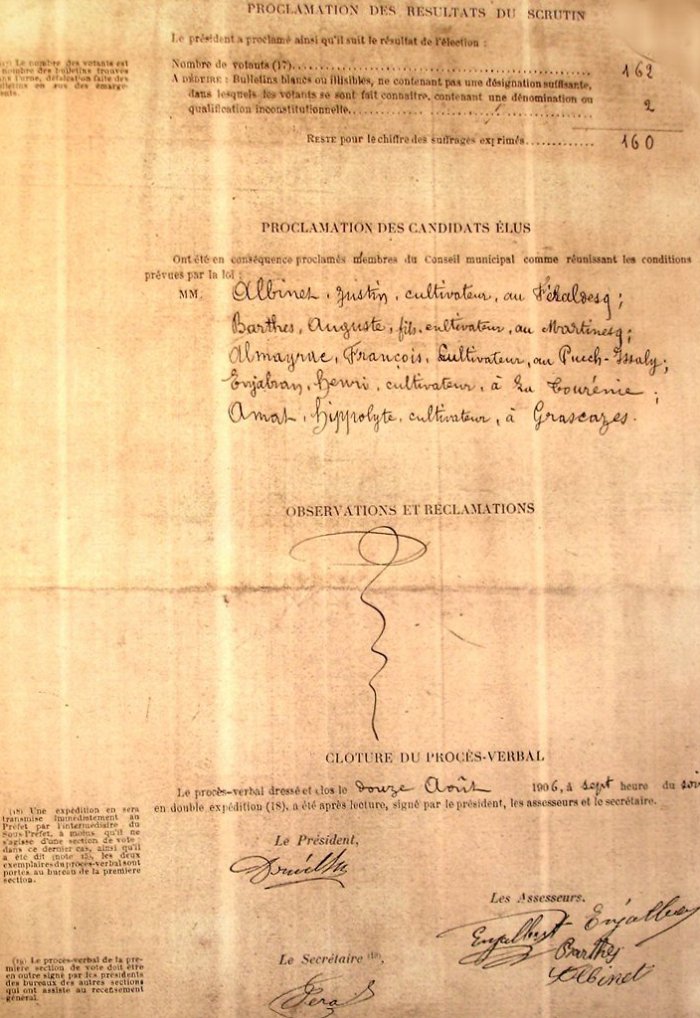 PROCLAMATION DES RÉSULTATS DU SCRUTIN
Le président a proclamé ainsi qu'il suit le résultat de l'élection :
(17) Le nombre des votants est
nombre des bulletins trouvés
ans l'urne, défalcation faite des
ulletins en sus des émarge-
ents.
Nombre de votants (17) 162
A DÉDUIRE : Bulletins blancs ou illisibles, ne contenant pas une désignation suffisante,
dans lesquels les votants se sont fait connaître, contenant une dénomination ou
qualification inconstitutionnelle. 2
RESTE pour le chiffre des suffrages exprimés 160
PROCLAMATION DES CANDIDATS ÉLUS
Ont été en conséquence proclamés membres du Conseil municipal comme réunissant les conditions
prévues par la loi :
MM. Albinet, Justin, cultivateur, au ;
Barthes, Auguste, fils, cultivateur, au Martinesq;
Almayrac, François, Cultivateur, au Puech-Issaly;
Enjabran, Henri, cultivateur, à La Tourénie ;
Amat, Hippolyte, cultivateur, à Grascazes.
OBSERVATIONS ET RÉCLAMATIONS
CLOTURE DU PROCÈS-VERBAL
Le procès-verbal dressé et clos le douze Août 1906, à sept heure du soir
en double expédition (18), a été après lecture, signé par le président, les assesseurs et le secrétaire.
(18) Une expédition en sera
transmise immédiatement au
Préfet par l'intermédiaire du
Sous-Préfet, à moins qu'il ne
s'agisse d'une section de vote
dans ce dernier cas, ainsi qu'il
a été dit (note 15), les deux
exemplaires du procès-verbal sont
portés au bureau de la première
section.
Le Président,
Les Assesseurs.
Enjalbert Enjalbert
Barthes
Albinet
(19) Le procès-verbal de la pre-
mière section de vote doit être
en outre signé par les présidents
des bureaux des autres sections
qui ont assisté au recensement
général.
Le Secrétaire (19),